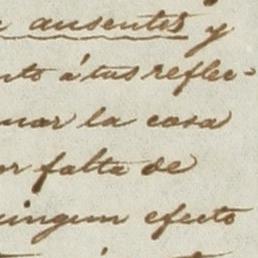 ausentes y
nto á tus reflec-
nar la cosa
or falta de
ningun efecto